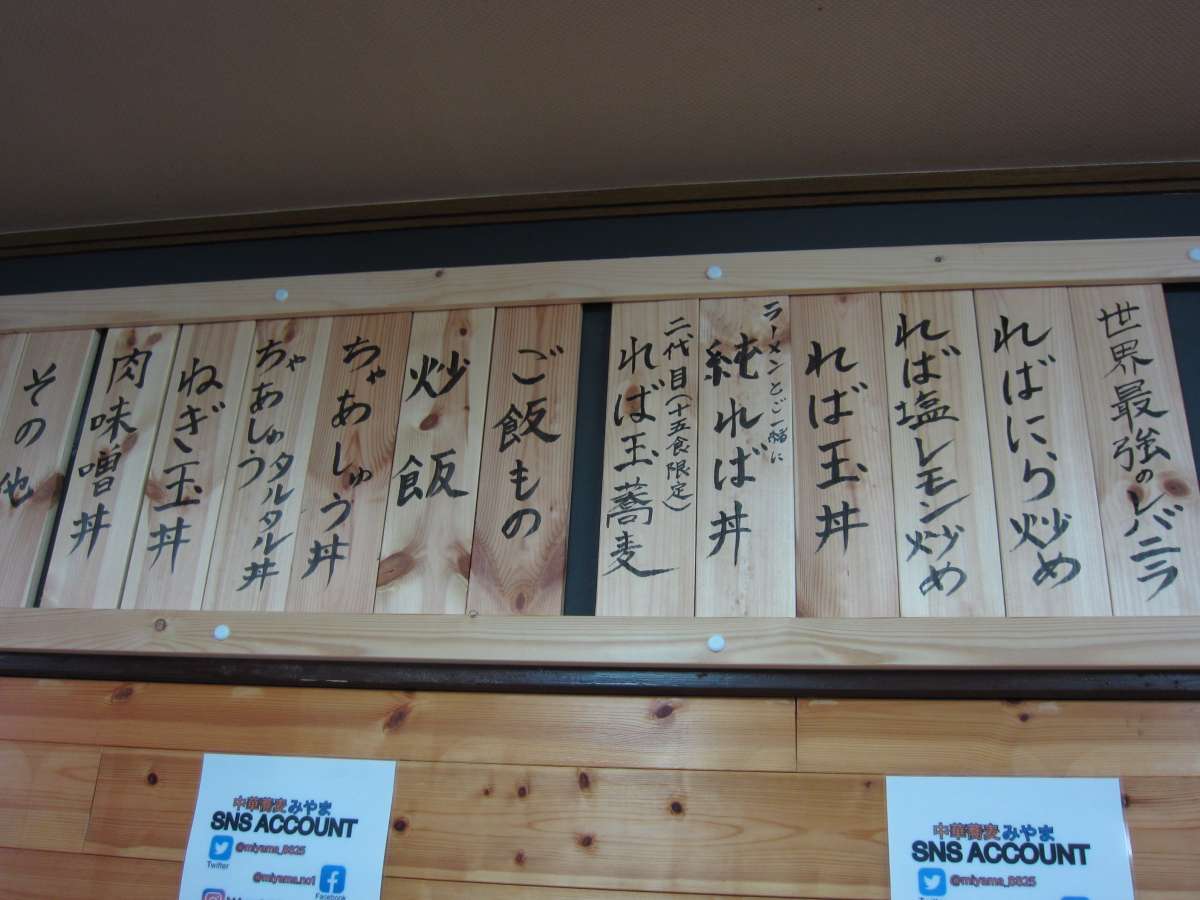 世界最強のレバニラ
ればにら炒め
れば塩レモン炒め
れば玉丼
ラーメンとご一緒に
純れば丼
二代目(十五食限定)
れば玉蕎麦
ご飯もの
炒飯
ちゃあしゅう丼
ちゃあしゅう
タルタル丼
ねぎ玉丼
肉味噌丼
その他
中華蕎麦 みやま
SNS ACCOUNT
@miyama_8825
Twitter
@miyama.no1
Facebook
中華蕎麦 みやま
SNS ACCOUNT
@miyama_8825